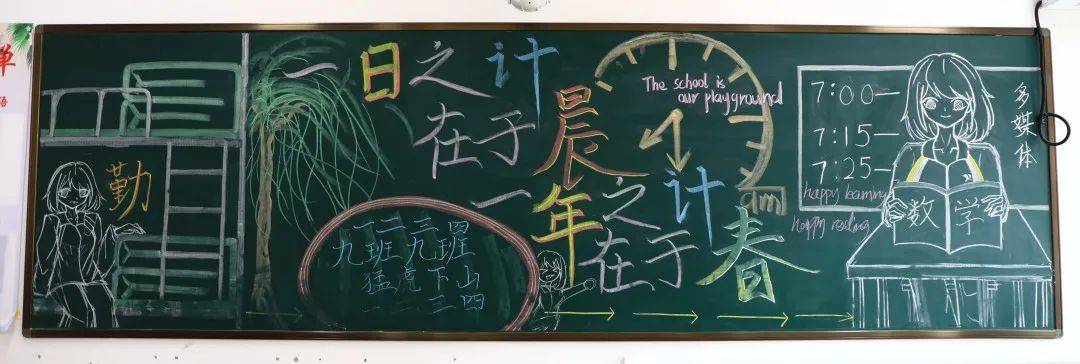 单
勤
一日之计
在于晨
一年之计
在于春
一二三四
九班九班
猛虎下山
一二三四
The school is
our playground
am
7:00—
7:15—
7:25—
happy learning
happy reading
数学
多媒体